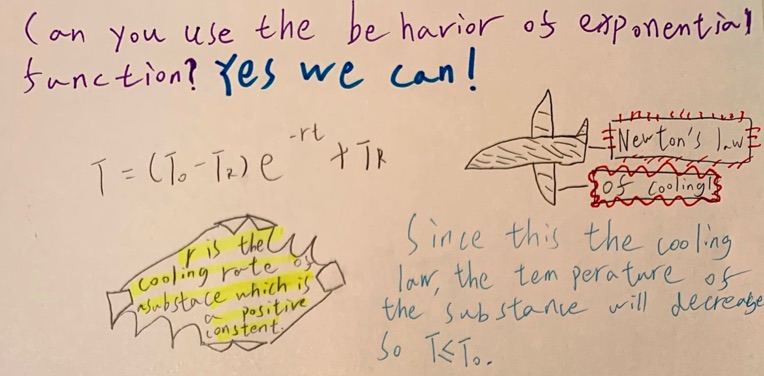 Can you use the behavior of exponential
function? Yes we can!
T = (T₀ - T_R) e^{-rt} + T_R
Newton's law
of cooling!
r is the
cooling rate of
asubstace which is
a positive
constent.
Since this the cooling
law, the temperature of
the substance will decrease
So T ≤ T₀.